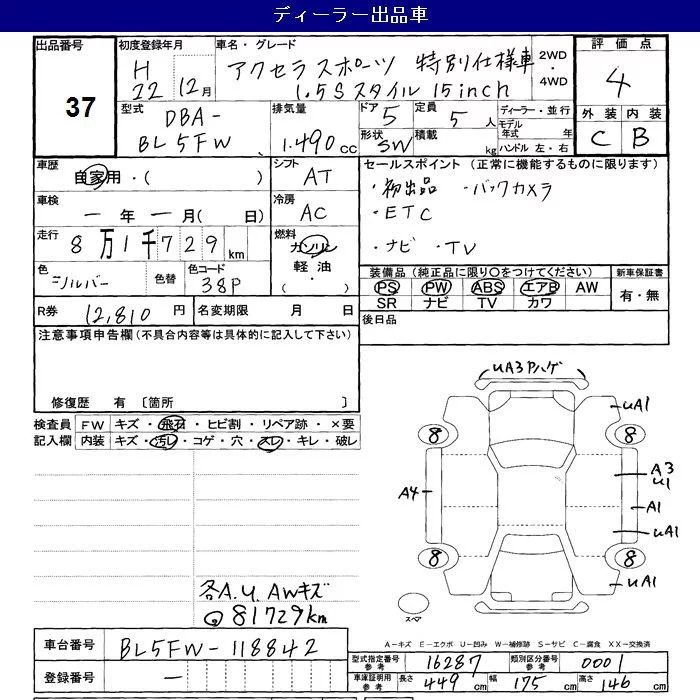 ディーラー出品車
出品番号 37
初度登録年月 H 22年 12月
車名・グレード アクセラスポーツ 特別仕様車
1.5Sスタイル 15inch
2WD・4WD
評価点 4
外装 内装
C B
型式 DBA-BL5FW
排気量 1.490cc
ドア 5
形状 SW
定員 5人
積載 kg
ディーラー・並行
モデル年式 年
ハンドル 左・右
車歴 自家用・( )
シフト AT
セールスポイント (正常に機能するものに限ります)
・初出品 ・バックカメラ
・ETC
・ナビ ・TV
車検 ー年ー月( 日)
冷房 AC
走行 8万1千729km
燃料 ガソリン
軽油・
( )
色 シルバー 色替
色コード 38P
装備品(純正品に限り○をつけてください)
PS PW ABS エアB AW
SR ナビ TV カワ
新車保証書
有・無
R券 12,810円
名変期限 月 日
後日品
注意事項申告欄(不具合内容等は具体的に記入して下さい)
修復歴 有 〔箇所 〕
検査員記入欄
FW キズ・飛石・ヒビ割・リペア跡・×要
内装 キズ・汚レ・コゲ・穴・スレ・キレ・破レ
UA3 Pハゲ
uA1
8 8
A3
U1
A4
A1
uA1
8 8
uA1
スペア
各A.U, AWキズ
81729km
A-キズ E-エクボ U-凹み W-補修跡 S-サビ C-腐食 XX-交換済
車台番号 BL5FW-118842
登録番号 ー
型式指定番号参考 16287
類別区分番号参考 0001
車庫証明用参考 長さ 449cm 幅 175cm 高さ 146cm